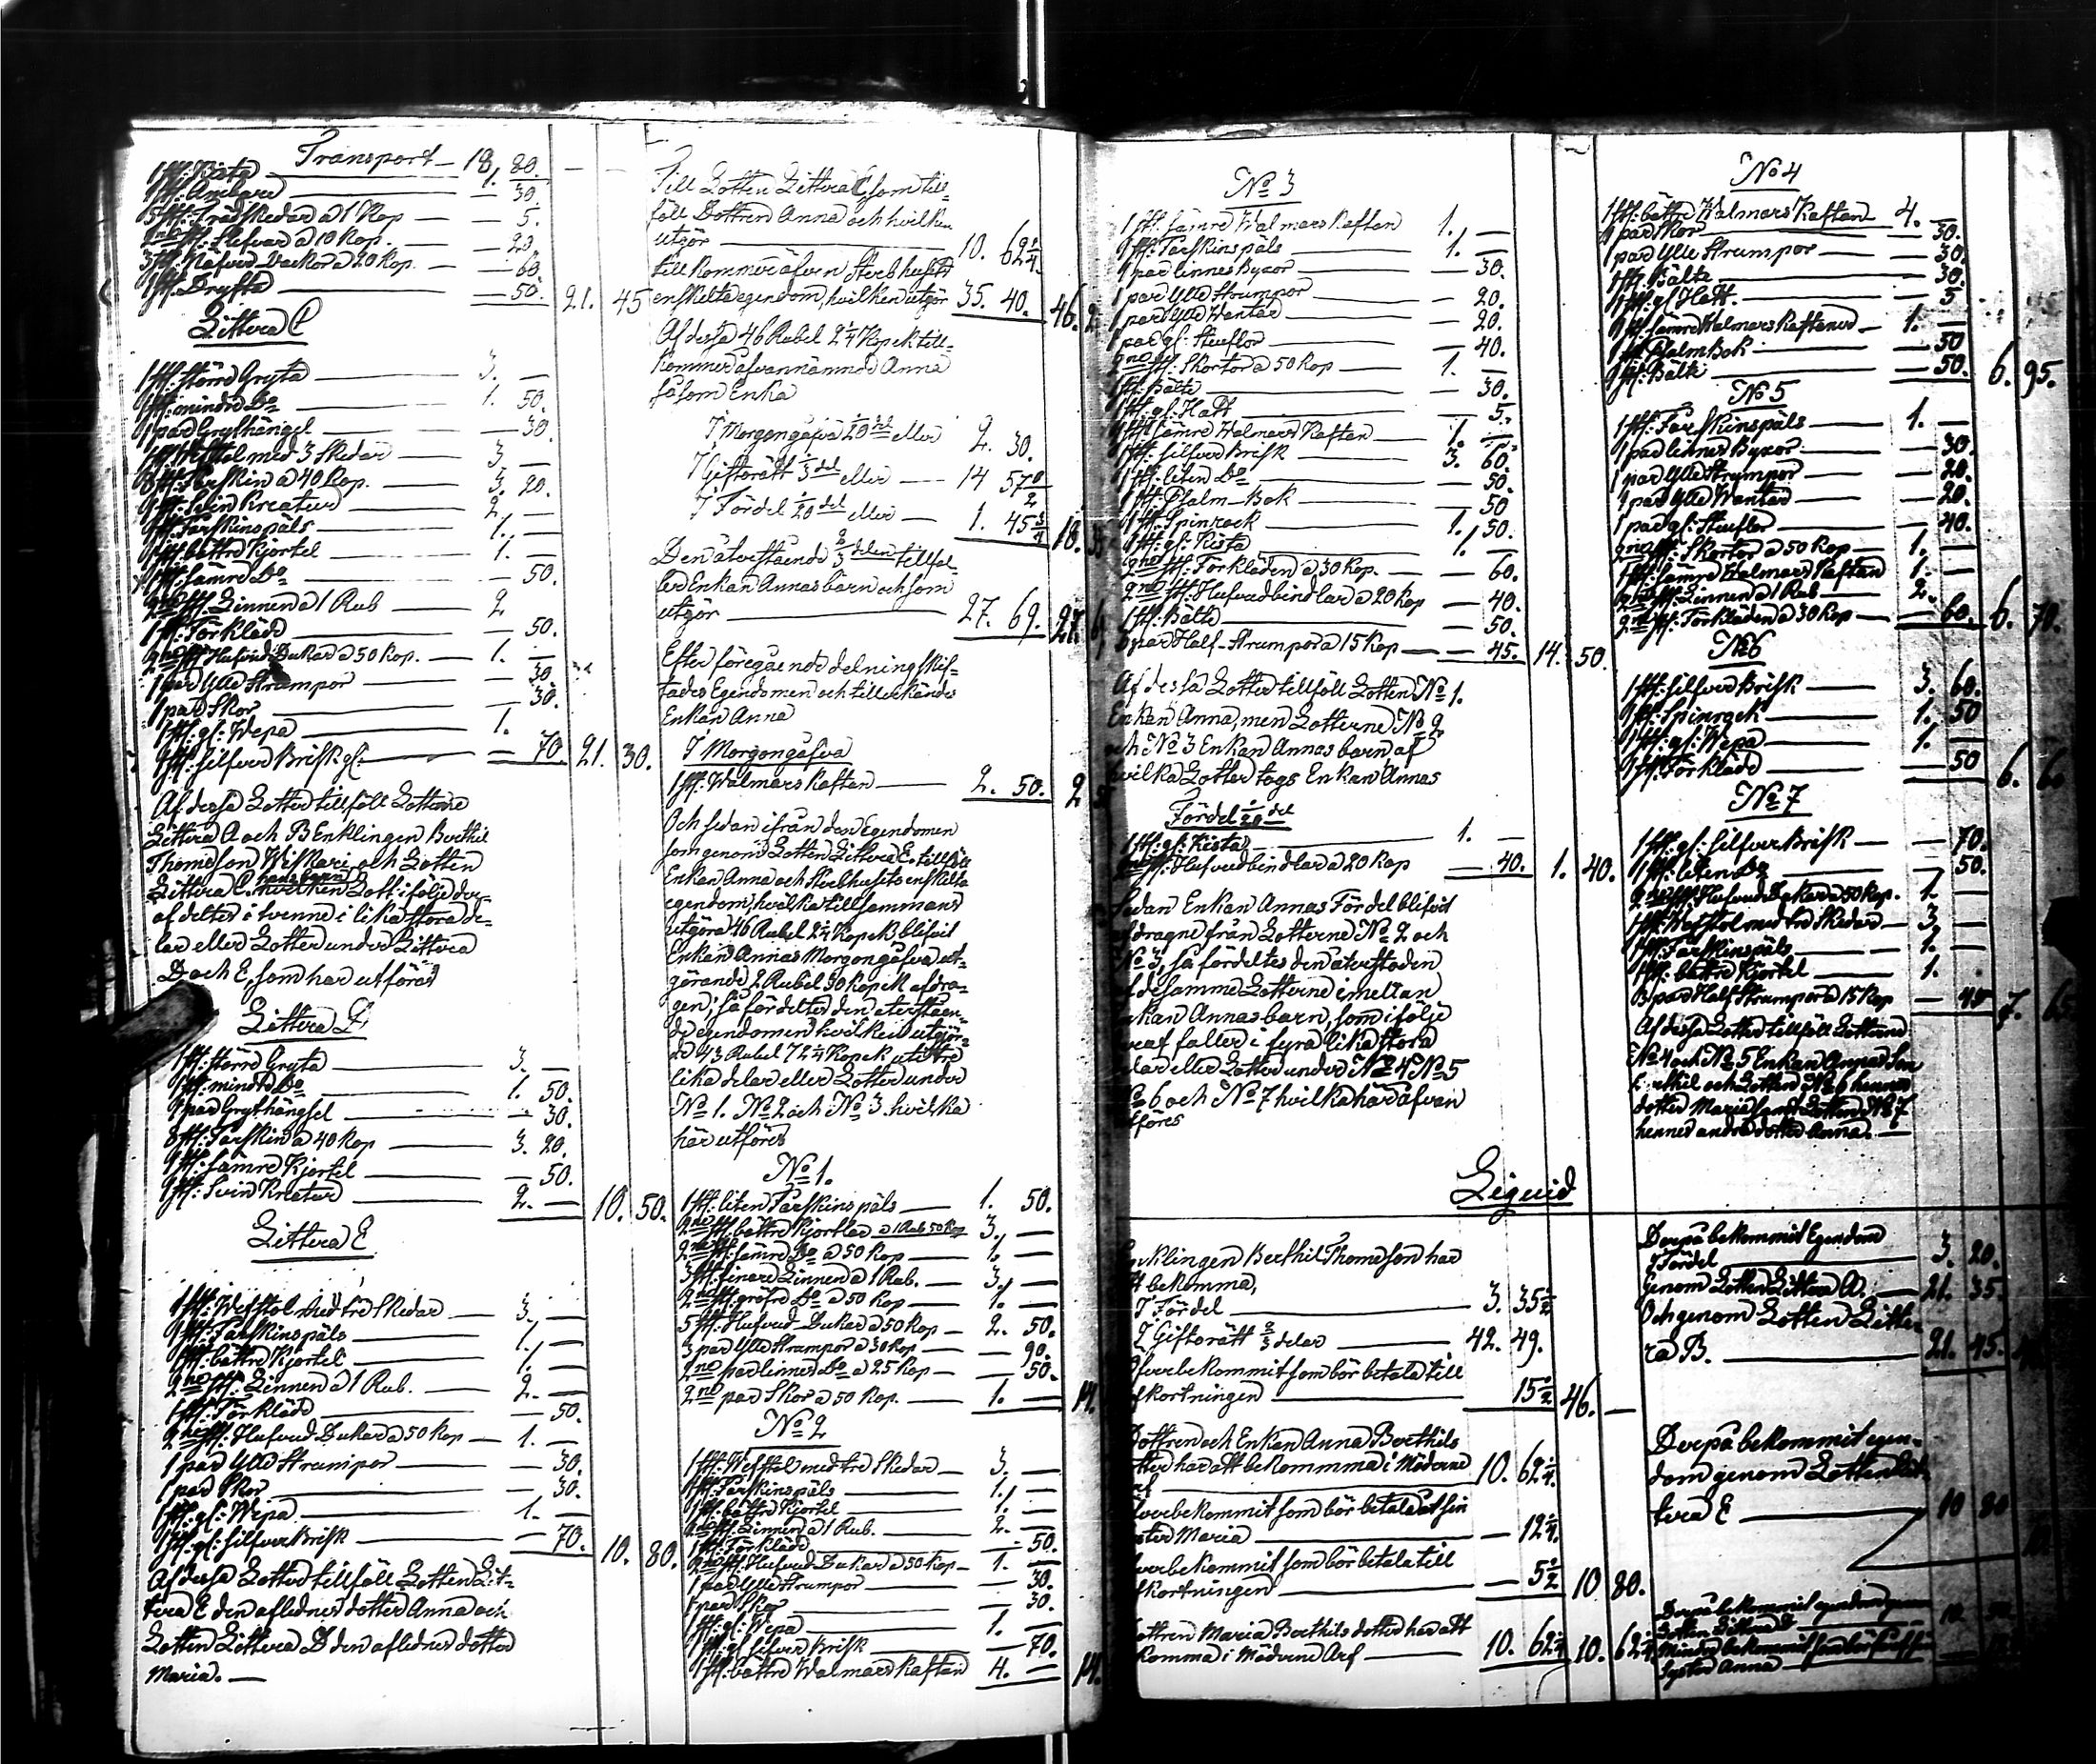 Transport — 18. 80.
1 st: Kista — 1. —
1 st: Ambare — 30.
5 st: Trädskedar a 1 Kop — 5.
2ne st: Skefvar a 10 Kop. — 20.
3 st: Näfver Backor a 20 Kop. — 60.
1 st: Dryfta — 50. 21. 45
Littera C
1 st: större Gryta — 3. —
1 st: mindre Do — 1. 50.
1 par Grythängsel — 30.
1 st: Wefstol med 3 Skedar — 3 —
8 st: Fårskin a 40 Kop. — 3. 20.
1 st: Svin Kreatur — 2. —
1 st: Fårskinspäls — 1. —
1 st: bättre Kjortel — 1. —
1 st: sämre Do — 50.
2ne st: Linnen a 1 Rub — 2
1 st: Förkläde — 50.
2ne st: Hufvud Dukar a 50 Kop. — 1. —
1 par Ylle Strumpor — 30.
1 par Skor — 30.
1 st: gl: Wepa — 1.
1 st: silfver Brisk gl: — 70. 21. 30.
Af dessa Lotter tillföll Lotterne
Littera A och B Enklingen Berthil
Thomasson Wiskari och Lotten
hans barn
Littera C. hvilken Lott i följe der-
af deltes i tvenne i lika stora de-
lar eller Lotter under Littera
D och E, som här utföras
Littera D
1 st: större Gryta — 3. —
1 st: mindre Do — 1. 50.
1 par Grythängsel — 30.
8 st: Fårskin a 40 Kop — 3. 20.
1 st: sämre Kjortel — 50.
1 st: Svin Kreatur — 2. — 10. 50.
Littera E
1 st: Wefstol med tre Skedar — 3. —
1 st: Fårskinspäls — 1. —
1 st: bättre Kjortel — 1. —
2ne st: Linnen a 1 Rub. — 2. —
1 st: Förkläde — 50.
2ne st: Hufvud Dukar a 50 Kop — 1. —
1 par Ylle Strumpor — 30.
1 par Skor — 30.
1 st: gl: Wepa — 1. —
1 st: gl: silfver Brisk — 70. 10. 80.
Af dessa Lotter tillföll Lotten Lit-
tera E den aflednes dotter Anna och
Lotten Littera D den aflednes dotter
Maria. —
Till Lotten Littera E som till-
föll Dottren Anna och hvilken
utgör — 10. 62 1/4.
tillkommer äfven Sterbhusets
enskilta egendom, hvilken utgör 35. 40. 46. 2
Af dessa 46 Rubel 2 1/4 Kopek till-
kommer ofvannämnde Anna
såsom Enka
I Morgongåfva 1/20 del eller 2. 30.
I Giftorätt 1/3 del eller — 14 57
I Fördel 1/20 del eller — 1. 45 18.
Den återstående 2/3 delen tillfal-
ler Enkan Annas barn och som
utgör — 27. 69. 27.
Efter föregående delning skif-
tades Egendomen och tillerkändes
Enkan Anna
I Morgongåfva
1 st: Walmars Kaftan — 2. 50. 2
Och sedan ifrån den Egendomen
som genom Lotten Littera E tillföll
Enkan Anna och Sterbhusets enskilta
egendom, hvilka tillsammans
utgöra 46 Rubel 2 1/4 Kopek, blifvit
Enkan Annas Morgongåfva ut-
görande 2 Rubel 50 kopek afdra-
gen, så fördeltes den återståen-
de egendomen hvilken utgör-
de 43 Rubel 72 1/4 Kopek uti tre
lika delar eller Lotter under
No 1. No 2 och No 3. hvilka
här utföres
No 1.
1 st: liten Fårskinspäls — 1. 50.
2ne st: bättre Kjortlar a 1 Rub 50 Kop 3. —
2ne st: sämre Do a 50 Kop — 1. —
3 st: finare Linnen a 1 Rub. — 3. —
2ne st: gröfre Do a 50 Kop — 1. —
5 st: Hufvud Dukar a 50 Kop — 2. 50.
3 par Ylle Strumpor a 30 Kop — 90.
2ne par linnes Do a 25 Kop — 50.
2ne par Skor a 50 Kop. — 1. — 14.
No 2
1 st: Wefstol med tre Skedar — 3. —
1 st: Fårskinspäls — 1. —
1 st: bättre Kjortel — 1. —
2ne st: Linnen a 1 Rub. — 2. —
1 st: Förkläde — 50.
2ne st: Hufvud Dukar a 50 Kop — 1. —
1 par Ylle Strumpor — 30.
1 par Skor — 30.
1 st: gl: Wepa — 1. —
1 st: gl: silfver Brisk — 70.
1 st: bättre Walmars Kaftan 4. — 14.
No 3
1 st: sämre Walmars Kaftan 1. —
1 st: Fårskinspäls — 1. —
1 par linnes Byxor — 30.
1 par Ylle Strumpor — 20.
1 par Ylle Wantar — 20.
1 par gl: Stöflor — 40.
2ne st: Skortor a 50 Kop — 1. —
1 st: Bälte — 30.
1 st: gl: Hatt — 5.
1 st: sämre Walmars Kaftan — 1. —
1 st: silfver Brisk — 3. 60.
1 st: liten Do — 50.
1 st: Psalm-Bok — 50
1 st: Spinrock — 1. 50.
1 st: gl: Kista — 1. —
2ne st: Förkläden a 30 Kop. — 60.
2ne st: Hufvudbindlar a 20 Kop — 40.
1 st: Bälte — 50.
3 par Half-Strumpor a 15 Kop — 45. 14. 50.
Af dessa Lotter tillföll Lotten No 1.
Enkan Anna, men Lotterne No 2
och No 3 Enkan Annas barn af
hvilka Lotter togs Enkan Annas
Fördel 1/20 del
1 st: gl: Kista — 1. —
2ne st: Hufvudbindlar a 20 Kop — 40. 1. 40.
Sedan Enkan Annas Fördel blifvit
afdragne från Lotterne No 2 och
No 3, så fördeltes den återstoden
af desamme Lotterne imellan
Enkan Annas barn, som i följe
deraf faller i fyra lika stora
delar eller Lotter under No 4 No 5
No 6 och No 7 hvilka här äfvan
utföres
No 4
1 st: bättre Walmars Kaftan — 4. —
1 par Skor — 30.
1 par Ylle Strumpor — 30.
1 st: Bälte — 30.
1 st: gl: Hatt. — 5
1 st: sämre Walmars Kaftan — 1. —
1 st: Psalm Bok — 50
1 st: Bälte — 50. 6. 95.
No 5
1 st: Fårskinspäls — 1. —
1 par linnes Byxor — 30.
1 par Ylle Strumpor — 20.
1 par Ylle Wantar — 20.
1 par gl: Stöflor — 40.
2ne st: Skortor a 50 Kop — 1. —
1 st: sämre Walmars Kaftan 1. —
2ne st: Linnen a 1 Rub — 2.
2ne st: Förkläden a 30 Kop — 60. 6. 70.
No 6
1 st: silfver Brisk — 3. 60.
1 st: Spinrock — 1. 50
1 st: gl: Wepa — 1. —
1 st: Förkläde — 50 6. 60
No 7
1 st: gl: silfver Brisk — 70.
1 st: liten Do — 50.
2ne st: Hufvud Dukar a 50 Kop. 1. —
1 st: Wefstol med tre Skedar — 3. —
1 st: Fårskinspäls — 1. —
1 st: bättre Kjortel — 1.
3 par Half Strumpor a 15 Kop — 45 7. 65
Af dessa Lotter tillföll Lotterne
No 4 och No 5 Enkan Annas Son
Berthil och Lotten No 6 hennes
dotter Maria samt Lotten No 7
hennes andra dotter Anna. —
Liquid
Enklingen Berthil Thomasson har
att bekomma,
I Fördel — 3. 35 1/2
I Giftorätt 2/3 delar — 42. 49.
Öfverbekommit som bör betala till
afkortningen — 15 1/2 46. —
Dottren och Enkan Anna Berthils
dotter har att bekomma i Möderne
Arf — 10. 62 1/4.
Öfverbekommit som bör betala åt sin
Syster Maria — 12 1/4.
Öfverbekommit som bör betala till
afkortningen — 5 1/2 10 80.
Dottren Maria Berthils dotter har att
bekomma i Möderne Arf — 10. 62 1/4 10. 62 1/4
Derpå bekommit Egendom
I Fördel — 3. 20.
Genom Lotten Littera A. — 21. 35.
Och genom Lotten Litte-
ra B. — 21. 45.
Derpå bekommit egen-
dom genom Lotten Lit-
tera E — 10 80
Derpå bekommit egendom genom
Lotten Littera D — 10. 50.
Mindre bekommit som bör få af sin
Syster Anna —